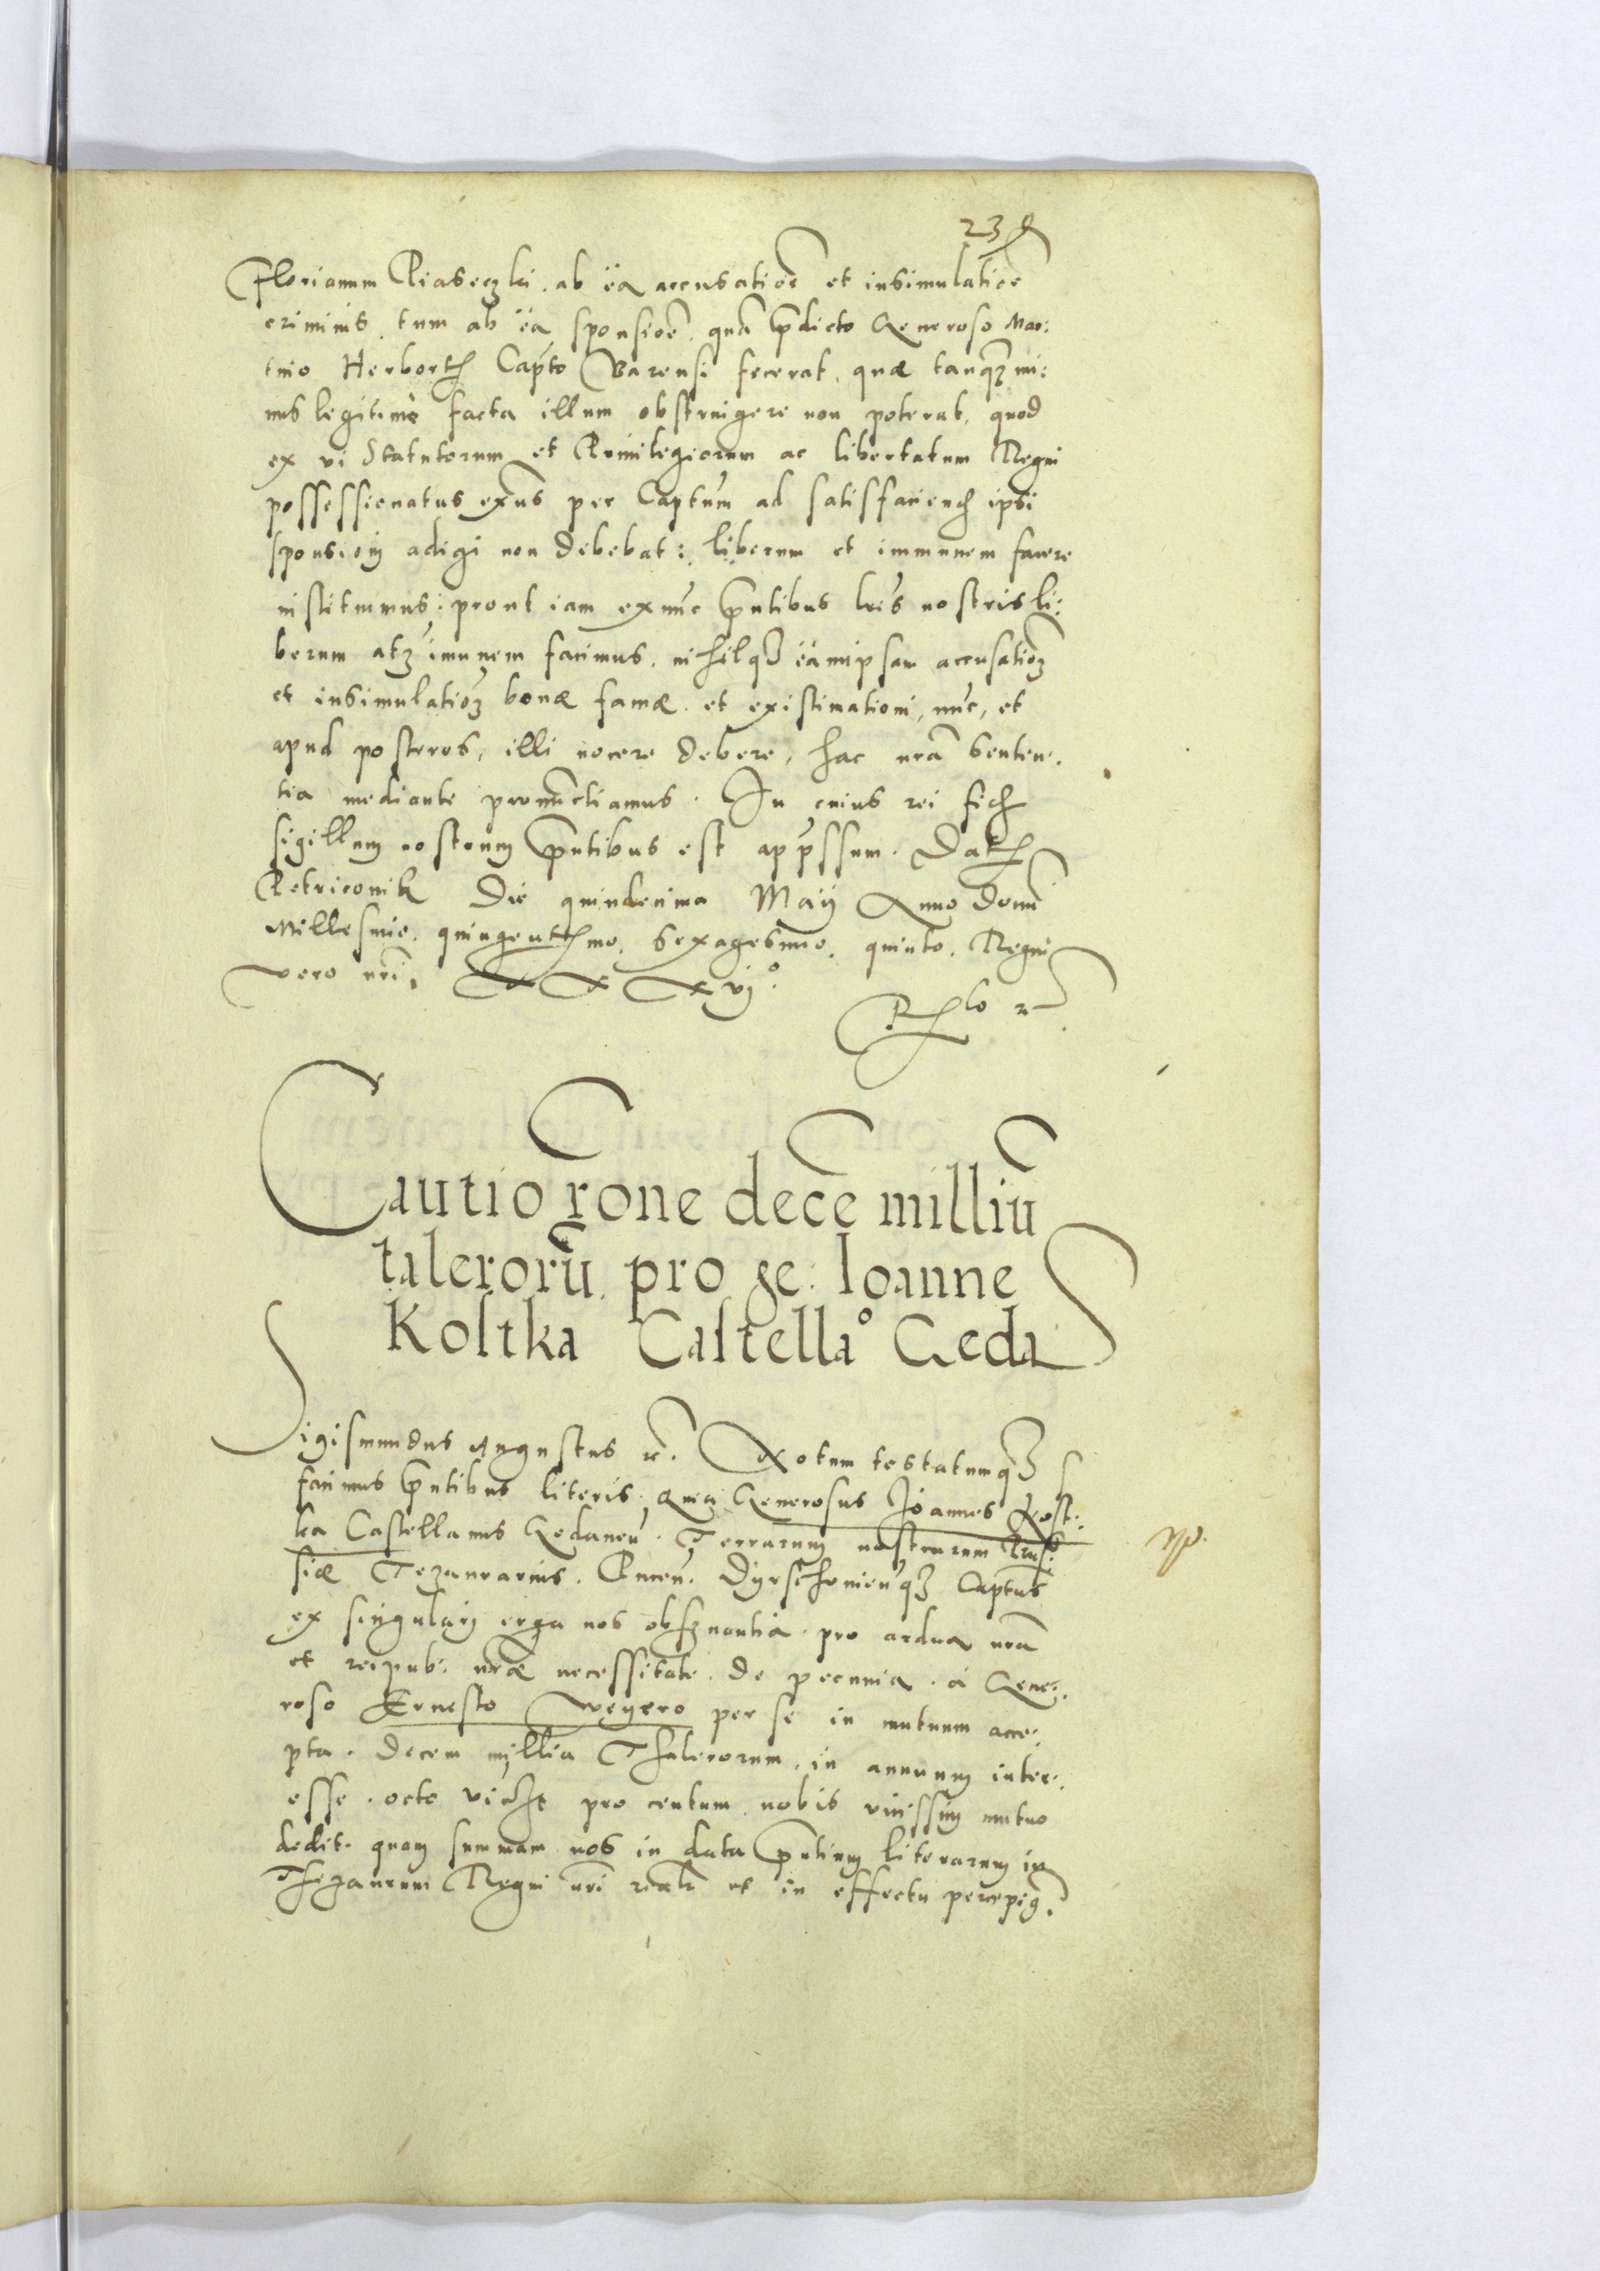 238
Florianum Piaseczki. ab ea accusatioe et insimulatioe
criminis, tum ab ea sponsioe, quā p̄dicto Generoso Mar:
tino Herborth Capto Barensi fecerat, quæ tanqȝ mi:
nus legitime facta illum obstringere non poterat, quod
ex vi Statutorum et Priuilegiorum ac libertatum Regni
possessionatus exns per Captum ad satisfaciend ipsi
sponsioni adigi non debebat: liberum et immunem facere
instituimus: prout iam exnūc p̄ntibus lris nostris li:
berum atqȝ imunem facimus, nihilqȝ eamipsam accusatioȝ
et insimulatioȝ bonæ famæ et existimationi, nūc, et
apud posteros, illi nocere debere, hac nrā senten:
tia mediante pronūctiamus. In cuius rei fid
sigillum nostrum p̄ntibus est app̄ssum. Dat
Petricouiæ Die quindecima Maij Anno Domi
Millesimo, quingentthmo, Sexagesimo, quinto, Regni
vero nri, XXXvjº
Cautio rōne decē milliū
talerorū pro ge: Ioanne
Kostka Castellaº Geda
Sigismundus Augustus rc. Notum testatumqȝ
facimus p̄ntibus literis, Quia Generosus Joannes Kost:
ka Castellanus Gedanen, Terrarum nostrarum Prus:
siæ Tezaurarius, Pucen, Dyrschouienqȝ Captus
ex singulari erga nos obseruantia, pro ardua nrā
et reipub: nræ necessitate, de pecunia, a Gene:
roso Ernesto Weyero per se in mutuum acce:
pta, decem millia Thalerorum, in annuum inter:
esse, octo vidht pro centum nobis vicissim mutuo
dedit, quam summam nos in data p̄ntium literarum in
Thezaurum Regni nri realr et in effectu percepim9.